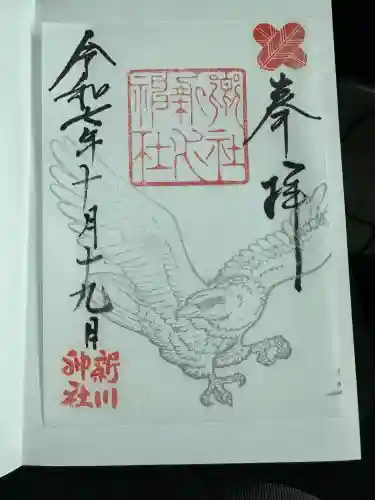 奉拝
郷社
新川
神社
令和七年十月十九日
新川
神社